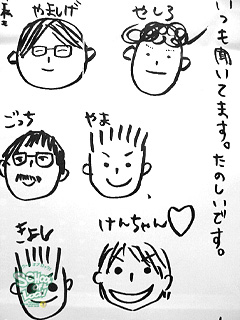 いつも聞いてます。たのしいです。
やましげ
やしろ
ごっち
やま
きよし
けんちゃん♡